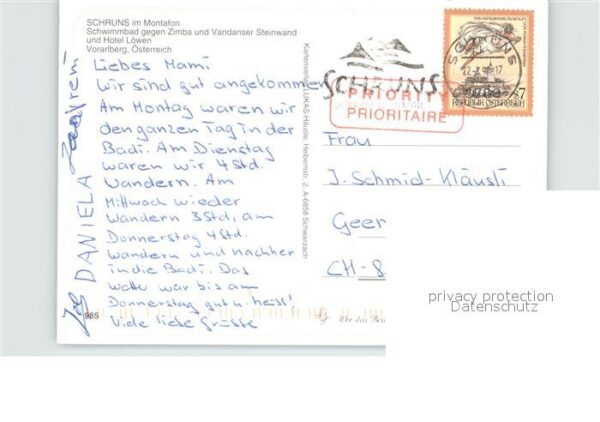 SCHRUNS im Montafon
Schwimmbad gegen Zimba und Vandanser Steinwand
und Hotel Löwen
Vorarlberg, Österreich
Liebes Mami
Wir sind gut angekommen
Am Montag waren wir
den ganzen Tag in der
Badi. Am Dienstag
waren wir 4 Std.
Wandern. Am
Mittwoch wieder
Wandern 3 Std, am
Donnerstag 4 Std.
Wandern und nachher
in die Badi. Das
war bis am
Donnerstag gut u. heiss!
Viele liebe Grüsse
DANIELA
985
Kartenverlag LUKAS-Häusle, A-6858 Schwarzach
SCHRUNS
PRIORITY
PRIORITAIRE
SCHRUNS
REPUBLIK ÖSTERREICH
S7
Frau
J. Schmid-Kläusli
Geer
CH-8
privacy protection
Datenschutz